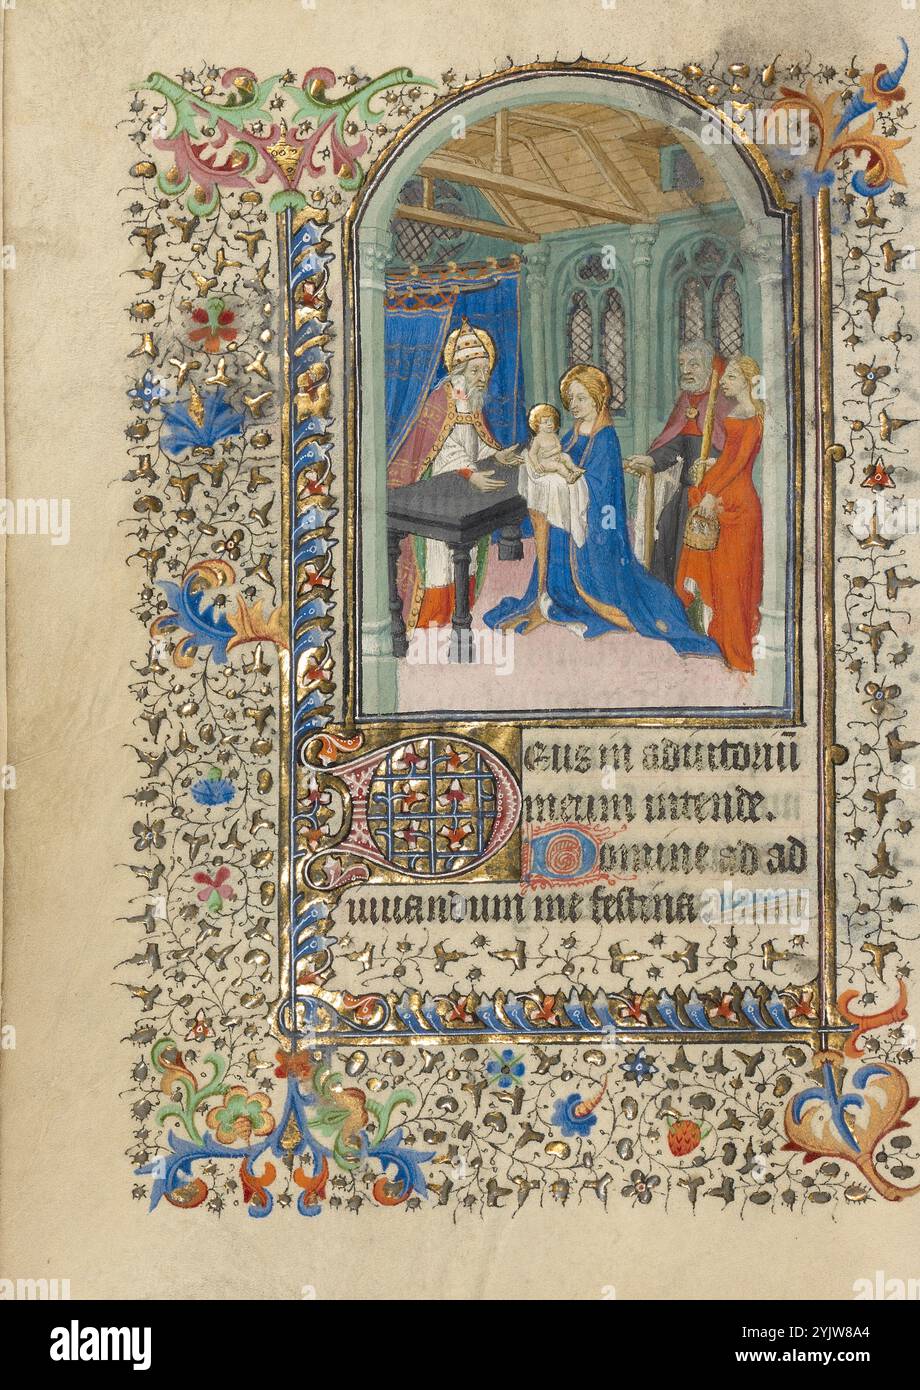 Deus in adiutoriū
meum intende.
Domine ad ad
iuuandum me festina
alamy
Image ID: 2YJW8A4
www.alamy.com